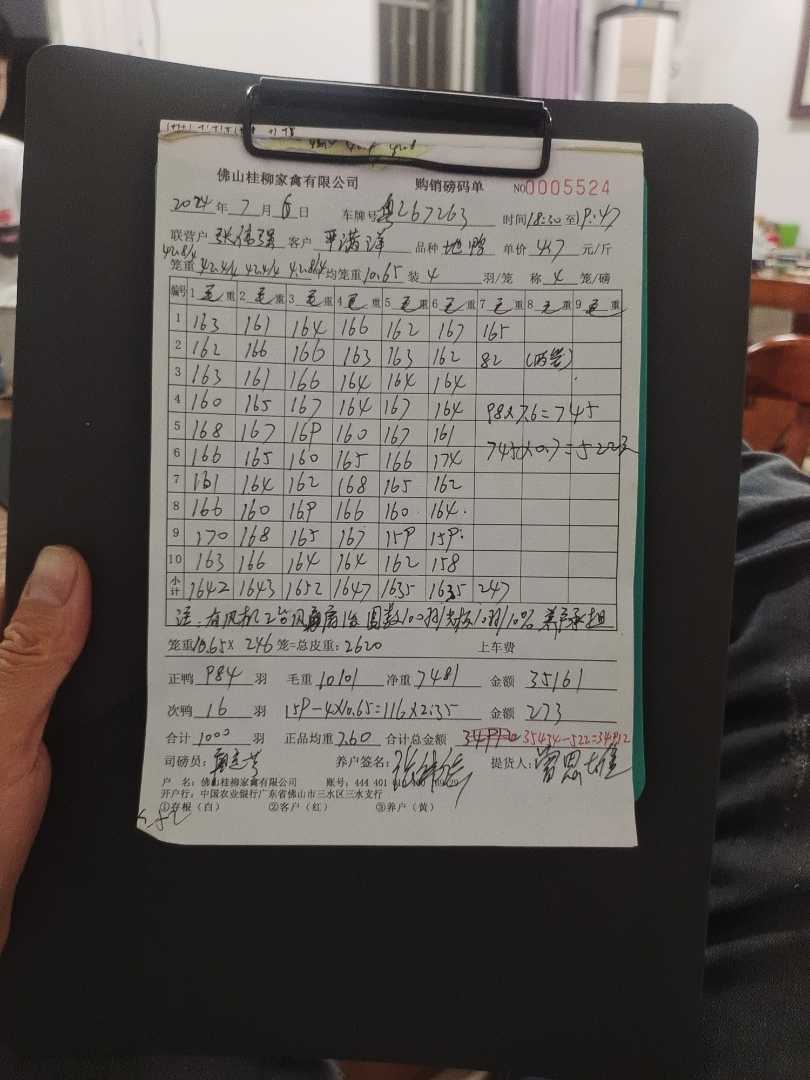 佛山桂柳家禽有限公司 购销磅码单 NO0005524
2024年7月6日 车牌号粤Z67263 时间18:30至19:47
联营户 张伟强 客户 平满洋 品种 地鸭 单价 4.7 元/斤
42.8/4
笼重42.4/4 42.4/4 42.8/4均笼重10.65 装4 羽/笼 称4 笼/磅
编号 1毛重 2毛重 3毛重 4毛重 5毛重 6毛重 7毛重 8毛重 9毛重
1 163 161 164 166 162 167 165
2 162 166 166 163 163 162 82 (两笼)
3 163 161 166 164 164 164
4 160 165 167 164 167 164 98×7.6=745
5 168 167 169 160 167 161
6 166 165 160 165 166 174 745×0.7=522元
7 161 164 162 168 165 162
8 166 160 169 166 160 164
9 170 168 165 167 159 159
10 163 166 164 164 162 158
小计 1642 1643 1652 1647 1635 1635 247
注:有风机2台风扇1台
笼重10.65×246笼=总皮重:2620 上车费
正鸭 984 羽 毛重 10101 净重 7481 金额 35161
次鸭 16 羽 159-4×10.65=116×2.35 金额 273
合计 1000 羽 正品均重 7.60 合计总金额 35434-522=34912
司磅员: 养户签名: 提货人:曾思雄
户 名:佛山桂柳家禽有限公司 账号:444 401
开户行:中国农业银行广东省佛山市三水区三水支行
①存根(白) ②客户(红) ③养户(黄)